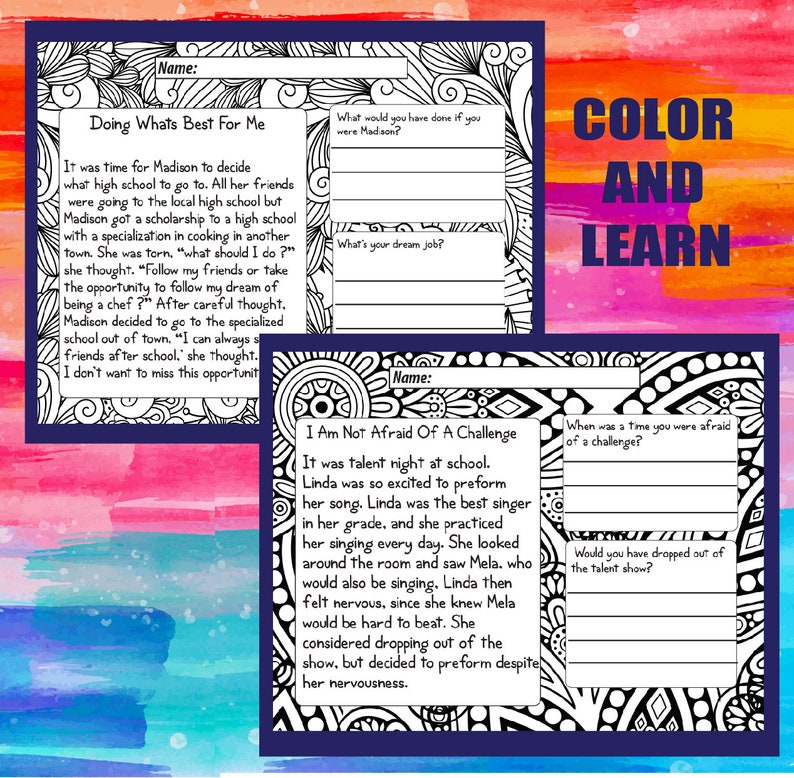 Name:
Doing Whats Best For Me
It was time for Madison to decide
what high school to go to. All her friends
were going to the local high school but
Madison got a scholarship to a high school
with a specialization in cooking in another
town. She was torn, “what should I do ?”
she thought. “Follow my friends or take
the opportunity to follow my dream of
being a chef ?” After careful thought,
Madison decided to go to the specialized
school out of town, “I can always s
friends after school,’ she thought.
I don’t want to miss this opportunit
What would you have done if you
were Madison?
What’s your dream job?
COLOR
AND
LEARN
Name:
I Am Not Afraid Of A Challenge
It was talent night at school.
Linda was so excited to preform
her song. Linda was the best singer
in her grade, and she practiced
her singing every day. She looked
around the room and saw Mela, who
would also be singing, Linda then
felt nervous, since she knew Mela
would be hard to beat. She
considered dropping out of the
show, but decided to preform despite
her nervousness.
When was a time you were afraid
of a challenge?
Would you have dropped out of
the talent show?